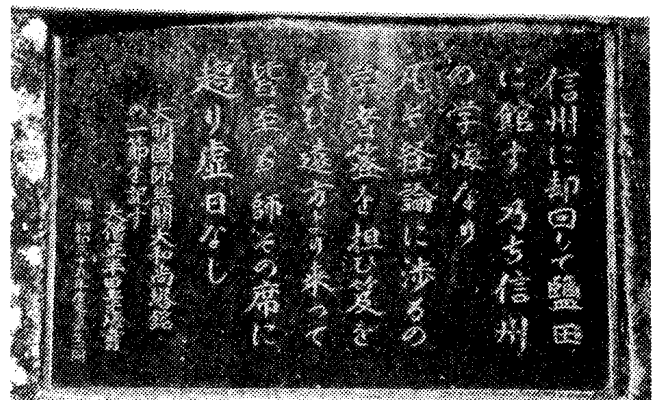 信州に却回して鹽田
に館す 乃ち信州
の学海なり
凡そ経論に渉るの
学者簦を担ひ笈を
負ひ遠方より来つて
皆至る 師その席に
趨り虚日なし
大明國師無關大和尚塔銘
の一節を記す